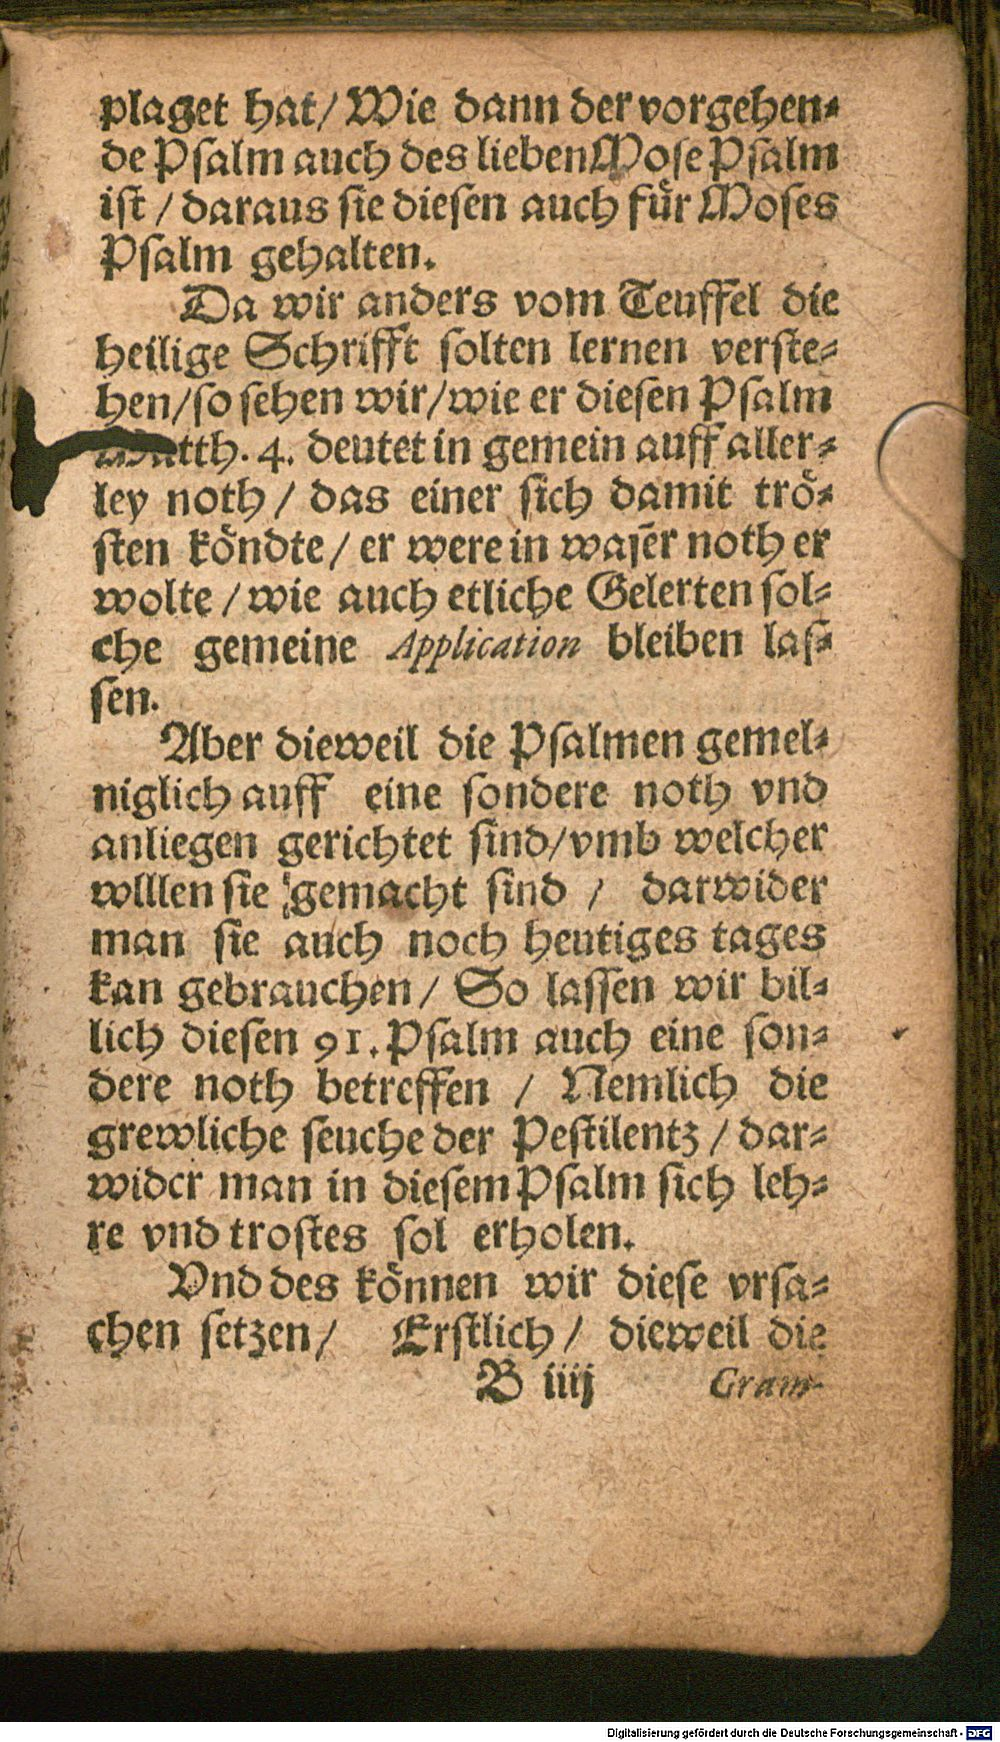 plaget hat/ Wie dann der vorgehen-
de Psalm auch des lieben Mose Psalm
ist / daraus sie diesen auch für Moses
Psalm gehalten.
Da wir anders vom Teuffel die
heilige Schrifft solten lernen verste-
hen/ so sehen wir/ wie er diesen Psalm
Matth. 4. deutet in gemein auff aller-
ley noth / das einer sich damit trö-
sten köndte / er were in waſẽr noth er
wolte / wie auch etliche Gelerten sol-
che gemeine Application bleiben las-
sen.
Aber dieweil die Psalmen gemel-
niglich auff eine sondere noth vnd
anliegen gerichtet sind/ vmb welcher
wlllen sie gemacht sind / darwider
man sie auch noch heutiges tages
kan gebrauchen / So lassen wir bil-
lich diesen 91. Psalm auch eine son-
dere noth betreffen / Nemlich die
grewliche seuche der Pestilentz / dar-
wider man in diesem Psalm sich leh-
re vnd trostes sol erholen.
Vnd des können wir diese vrsa-
chen setzen / Erstlich / dieweil die
B iiij Gram-
Digitalisierung gefördert durch die Deutsche Forschungsgemeinschaft - DFG